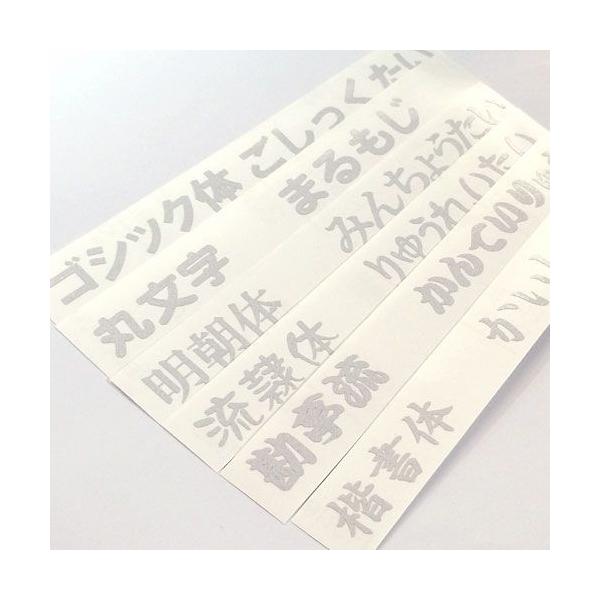 ゴシック体 ごしっくたい
丸文字 まるもじ
明朝体 みんちょうたい
流隷体 りゅうれいたい
勘亭流 かんていりゅ
楷書体 かい